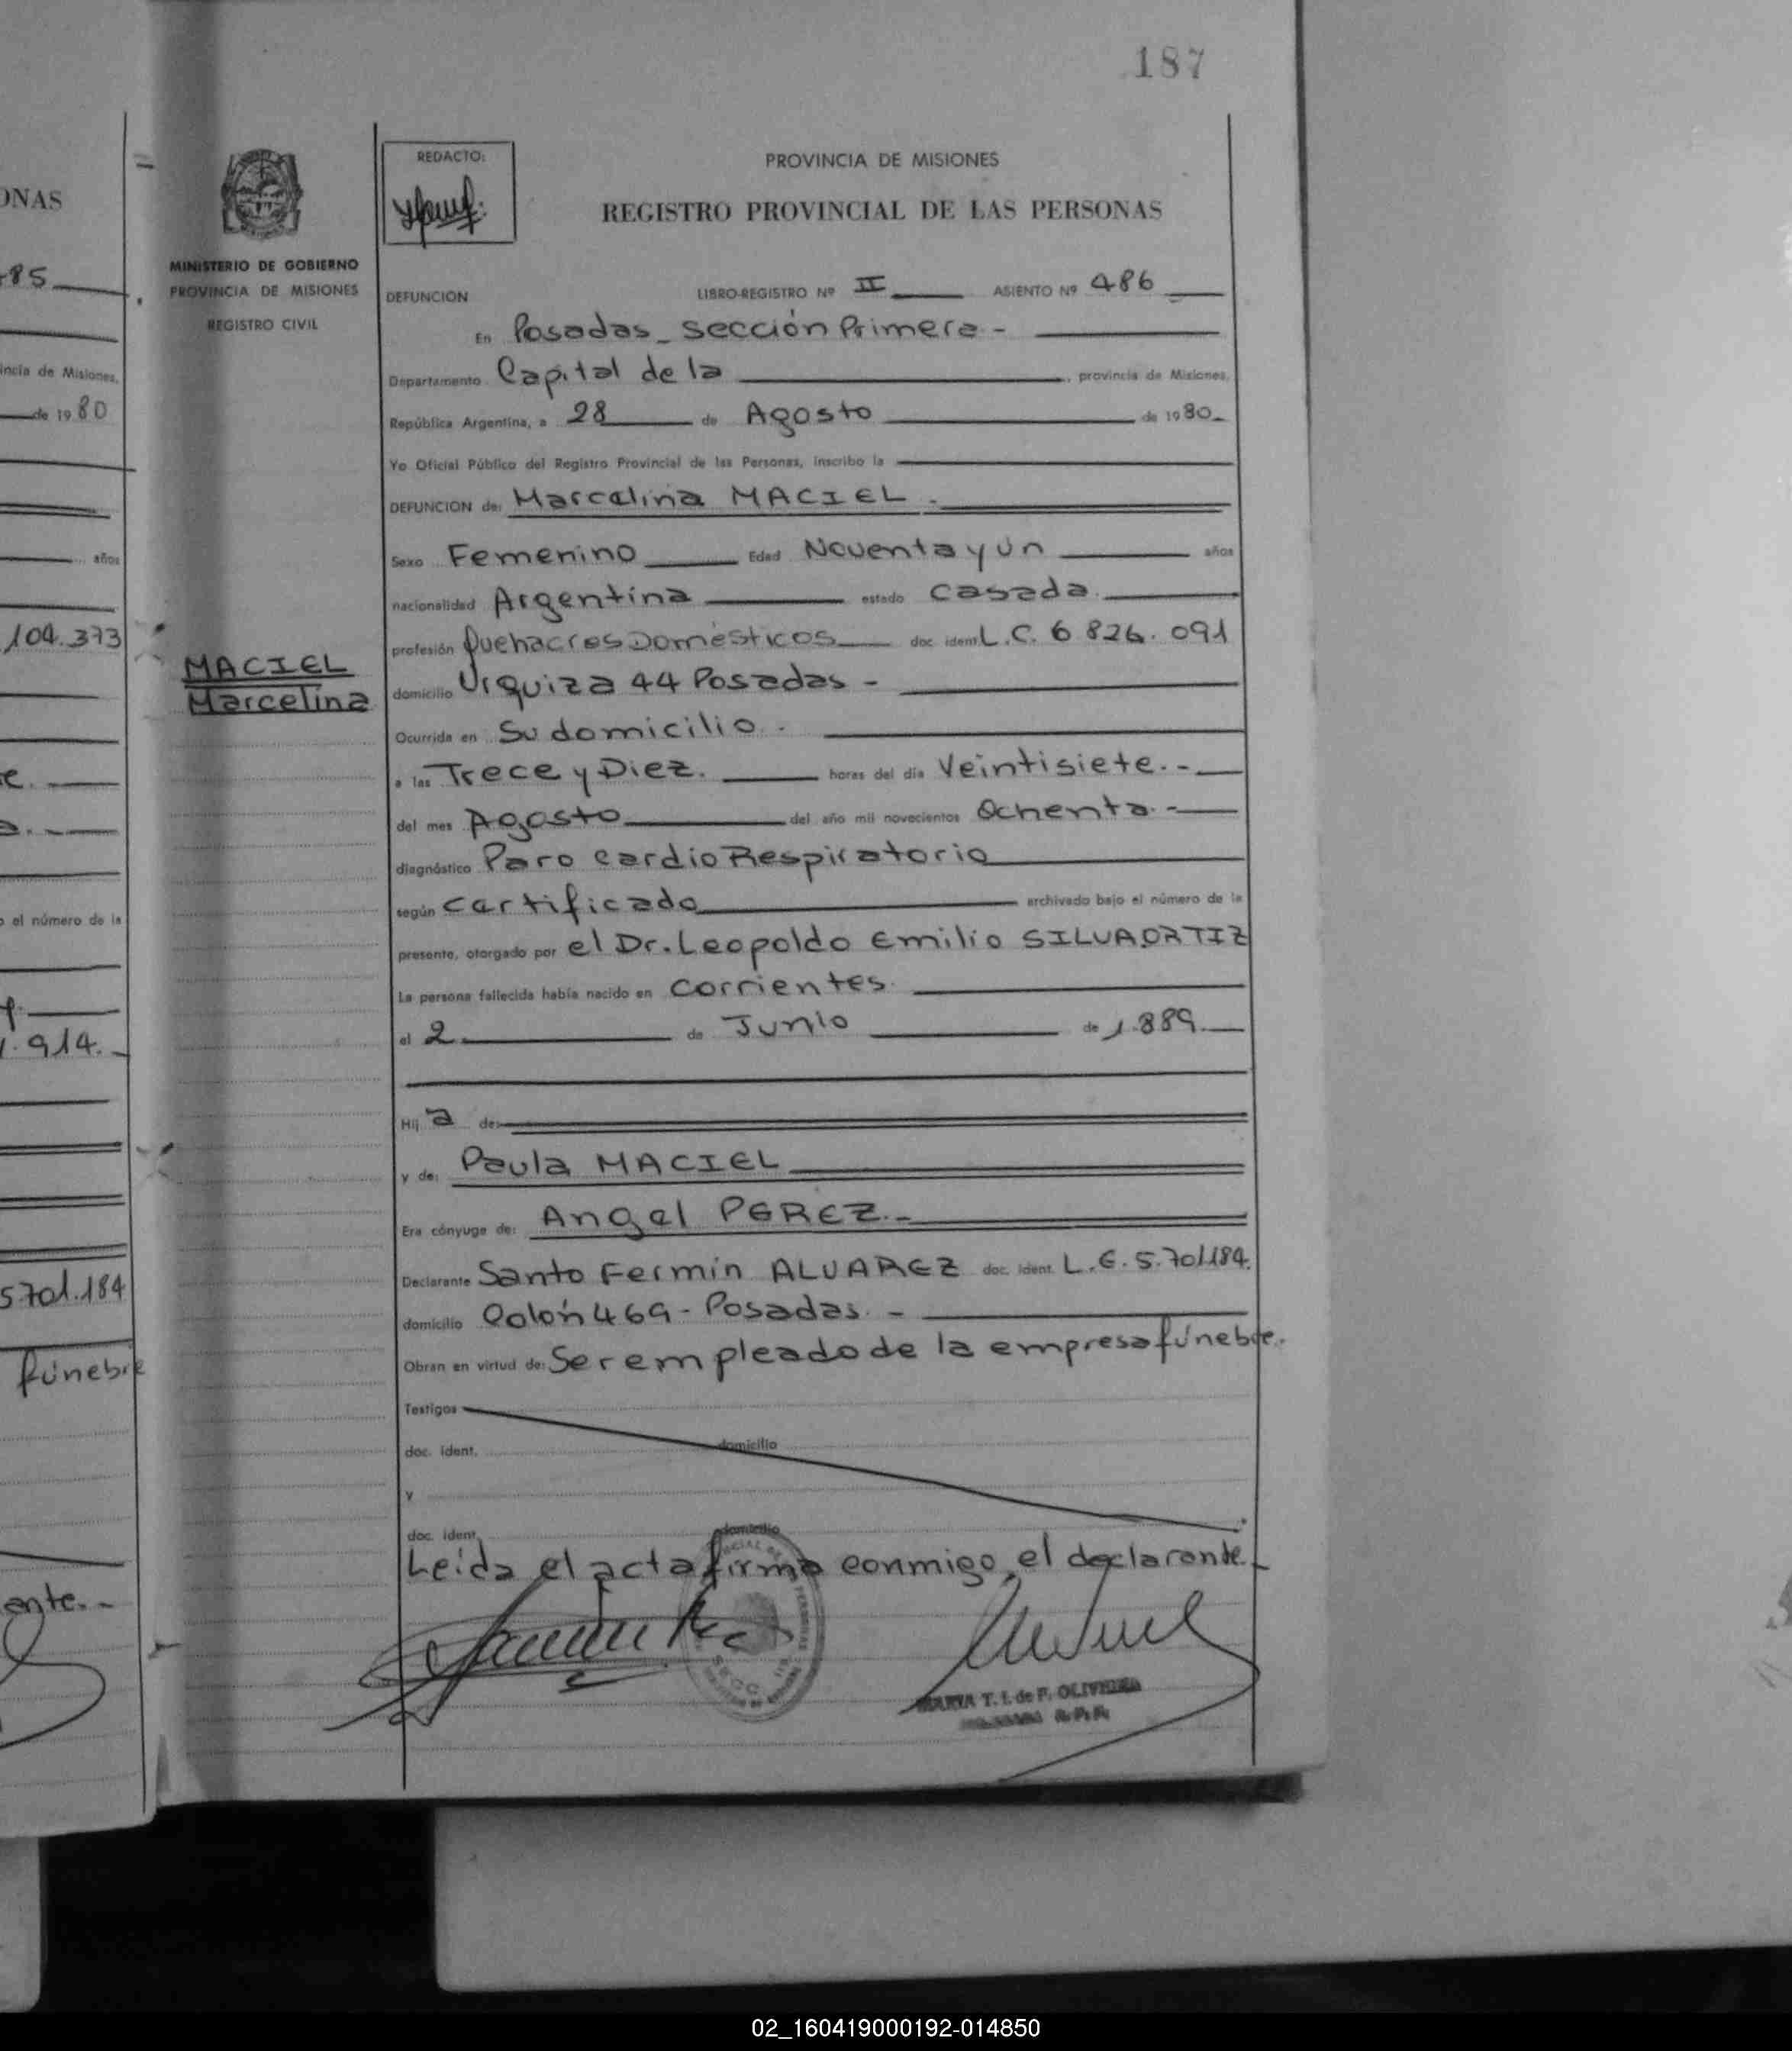 187
ONAS
485
incia de Misiones,
de 1980
años
104.373
e.
a.
o el número de la
1.914.
5.701.184
fúnebre
ante.-
MINISTERIO DE GOBIERNO
PROVINCIA DE MISIONES
REGISTRO CIVIL
MACIEL
Marcelina
REDACTO:
PROVINCIA DE MISIONES
REGISTRO PROVINCIAL DE LAS PERSONAS
DEFUNCION LIBRO-REGISTRO Nº II ASIENTO Nº 486
En Posadas_ Sección Primera -
Departamento Capital de la , provincia de Misiones,
República Argentina, a 28 de Agosto de 1980_
Yo Oficial Público del Registro Provincial de las Personas, inscribo la
DEFUNCION de: Marcelina MACIEL .-
Sexo Femenino Edad Noventa y ún años
nacionalidad Argentina estado Casada.
profesión Quehacres Domésticos doc. ident L.C. 6 826. 091
domicilio Urquiza 44 Posadas -
Ocurrida en Su domicilio -
a las Trece y Diez. horas del día Veintisiete.-
del mes Agosto del año mil novecientos Ochenta.-
diagnóstico Paro Cardio Respiratorio
según Certificado archivado bajo el número de la
presente, otorgado por el Dr. Leopoldo Emilio SILVA ORTIZ
La persona fallecida había nacido en Corrientes.
el 2 de Junio de 1.889.
Hij a de:
y de: Paula MACIEL
Era cónyuge de: Angel PEREZ.-
Declarante Santo Fermín ALVAREZ doc. ident. L.E. 5.701.184.
domicilio Colón 469 - Posadas. -
Obran en virtud de: Ser empleado de la empresa fúnebre.
Testigos
doc. ident. domicilio
y
doc. ident. domicilio
Leída el acta firma conmigo, el declarante.
MARIA T. I. de F. OLIVEIRA
02_160419000192-014850